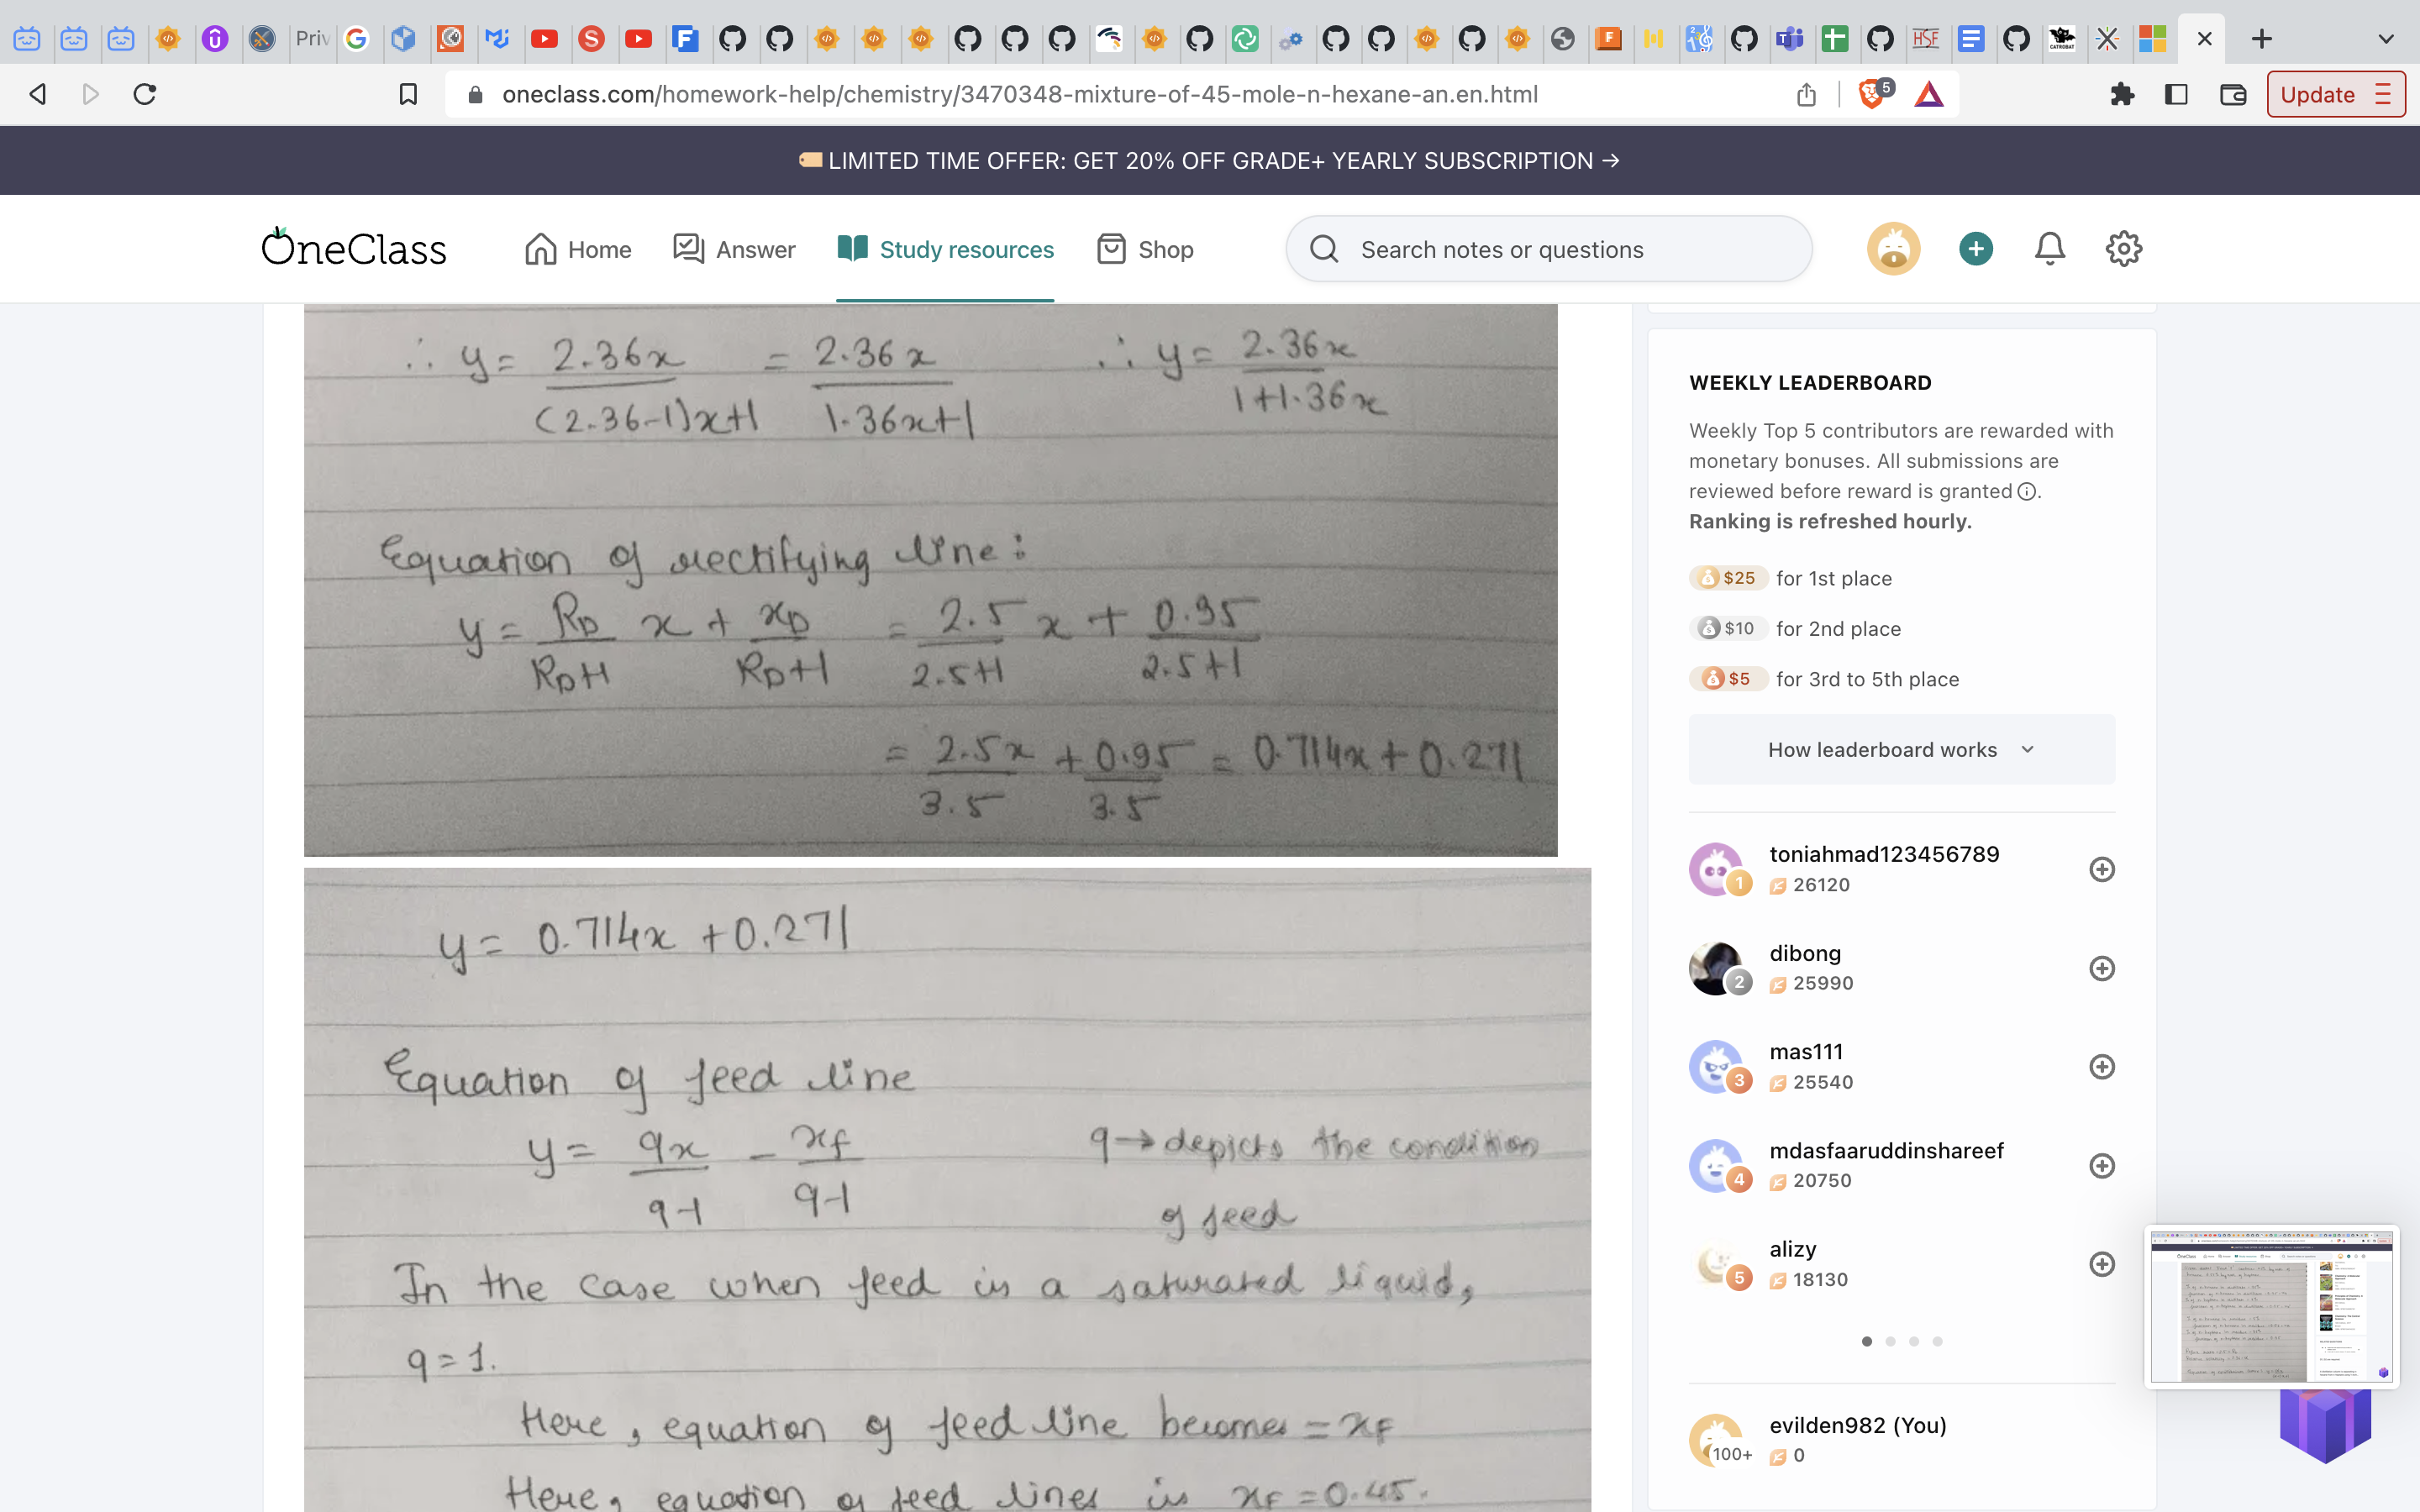 Priv
oneclass.com/homework-help/chemistry/3470348-mixture-of-45-mole-n-hexane-an.en.html
5
Update
LIMITED TIME OFFER: GET 20% OFF GRADE+ YEARLY SUBSCRIPTION →
OneClass
Home
Answer
Study resources
Shop
Search notes or questions
∴ y = 2.36x / (2.36-1)x+1 = 2.36x / 1.36x+1 ∴ y = 2.36x / 1+1.36x
Equation of rectifying line:
y = RD / RD+1 x + xD / RD+1 = 2.5 / 2.5+1 x + 0.95 / 2.5+1
= 2.5x / 3.5 + 0.95 / 3.5 = 0.714x + 0.271
y = 0.714x + 0.271
Equation of feed line
y = qx / q-1 - xF / q-1 q → depicts the condition
of feed
In the case when feed is a saturated liquid,
q = 1.
Here, equation of feed line becomes = xF
Here, equation of feed lines is xF = 0.45.
WEEKLY LEADERBOARD
Weekly Top 5 contributors are rewarded with
monetary bonuses. All submissions are
reviewed before reward is granted.
Ranking is refreshed hourly.
$25 for 1st place
$10 for 2nd place
$5 for 3rd to 5th place
How leaderboard works
toniahmad123456789
1
26120
dibong
2
25990
mas111
3
25540
mdasfaaruddinshareef
4
20750
alizy
5
18130
evilden982 (You)
100+
0